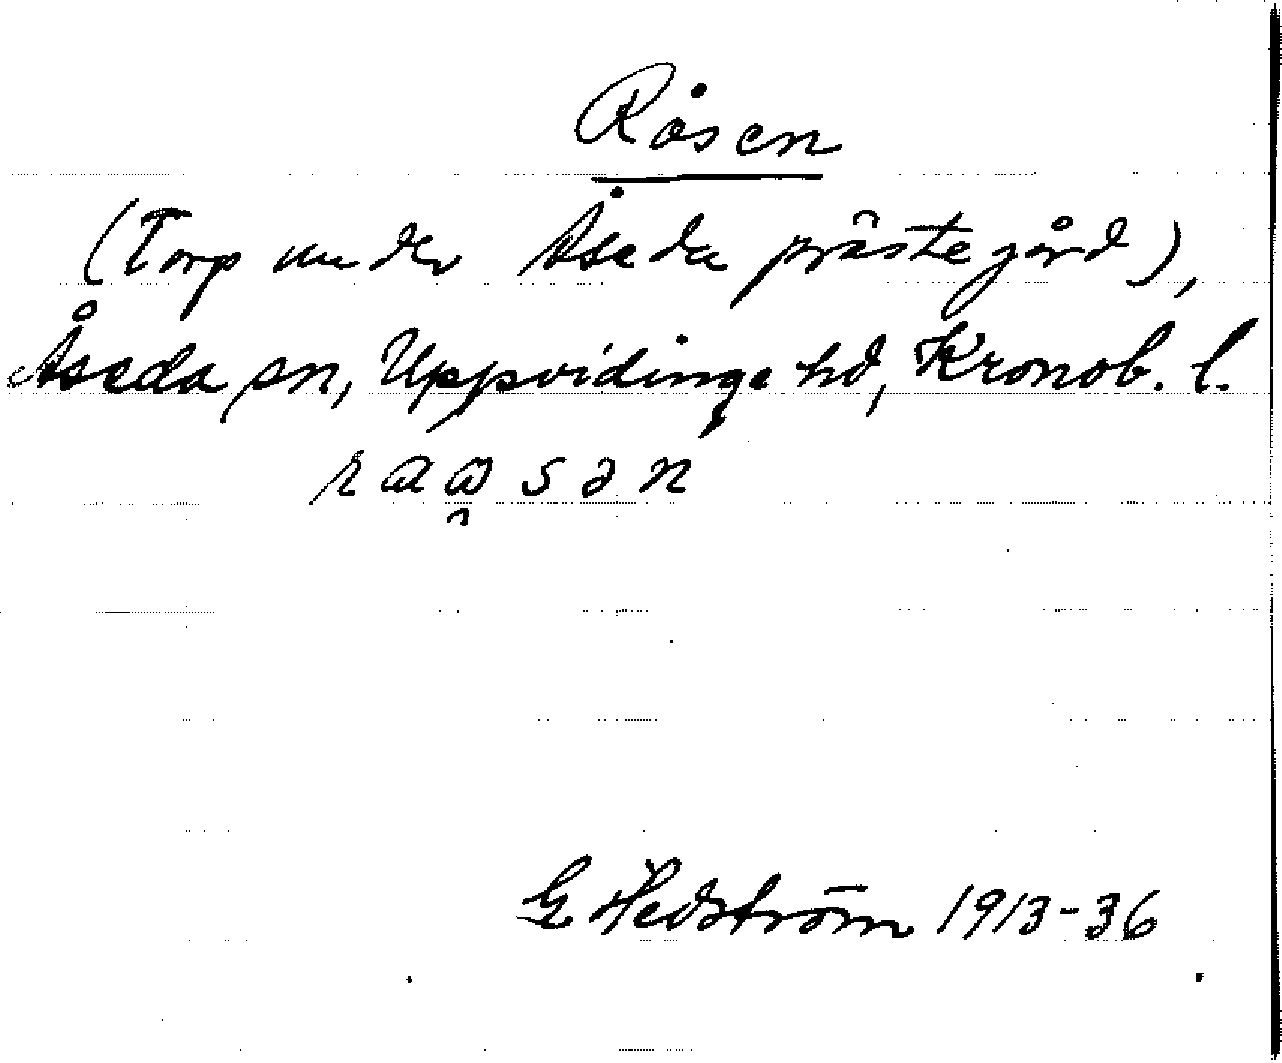 Råsen
(Torp under Åseda prästegård),
Åseda sn, Uppvidinge hd, Kronob. l.
G Hedström 1913-36